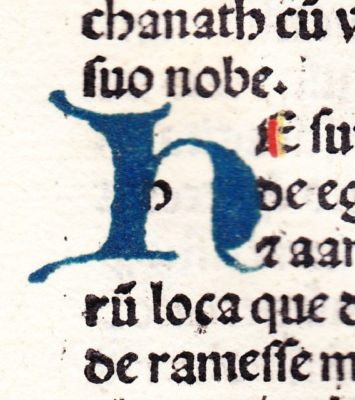 chanath cū v
ſuo nobe.
h Æ ſu
h de eg
⁊ aar
rū loca que d
de rameſſe m